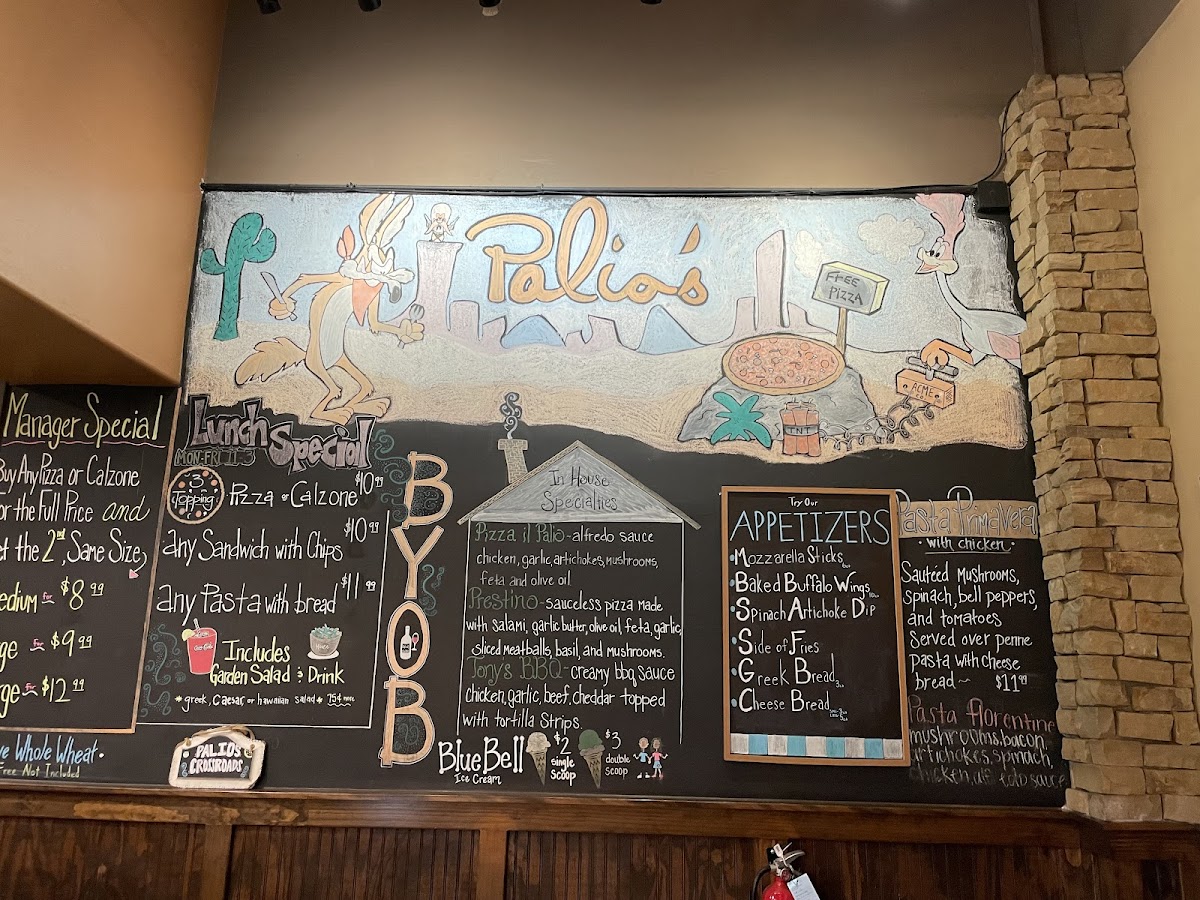 Palio's
FREE
PIZZA
ACME
TNT
Manager Special
Buy Any Pizza or Calzone
for the Full Price and
the 2nd, Same Size,
for $8 99
for $9 99
for $12 99
Whole Wheat.
Free Not Included
Lunch Special
MON-FRI 11-3
3 Topping Pizza or Calzone $10 99
any Sandwich with Chips $10 99
any Pasta with bread $11 99
Includes
Garden Salad & Drink
* greek, Caesar, or hawaiian salad * 75¢ more
PALIO'S
CROSSROADS
BYOB
In House
Specialties
Pizza il Palio - alfredo sauce
chicken, garlic, artichokes, mushrooms,
feta and olive oil
Prestino - sauceless pizza made
with salami, garlic butter, olive oil, feta, garlic,
sliced meatballs, basil, and mushrooms.
Tony's BBQ - creamy bbq sauce
chicken, garlic, beef, cheddar topped
with tortilla strips
Blue Bell
Ice Cream
$2
single
scoop
$3
double
scoop
Try Our
APPETIZERS
Mozzarella Sticks
Baked Buffalo Wings
Spinach Artichoke Dip
Side of Fries
Greek Bread
Cheese Bread
Pasta Primavera
• with chicken •
Sauteed Mushrooms,
spinach, bell peppers,
and tomatoes
served over penne
pasta with cheese
bread ~ $11 99
Pasta florentine
mushrooms, bacon,
artichokes, spinach,
chicken, alfredo sauce